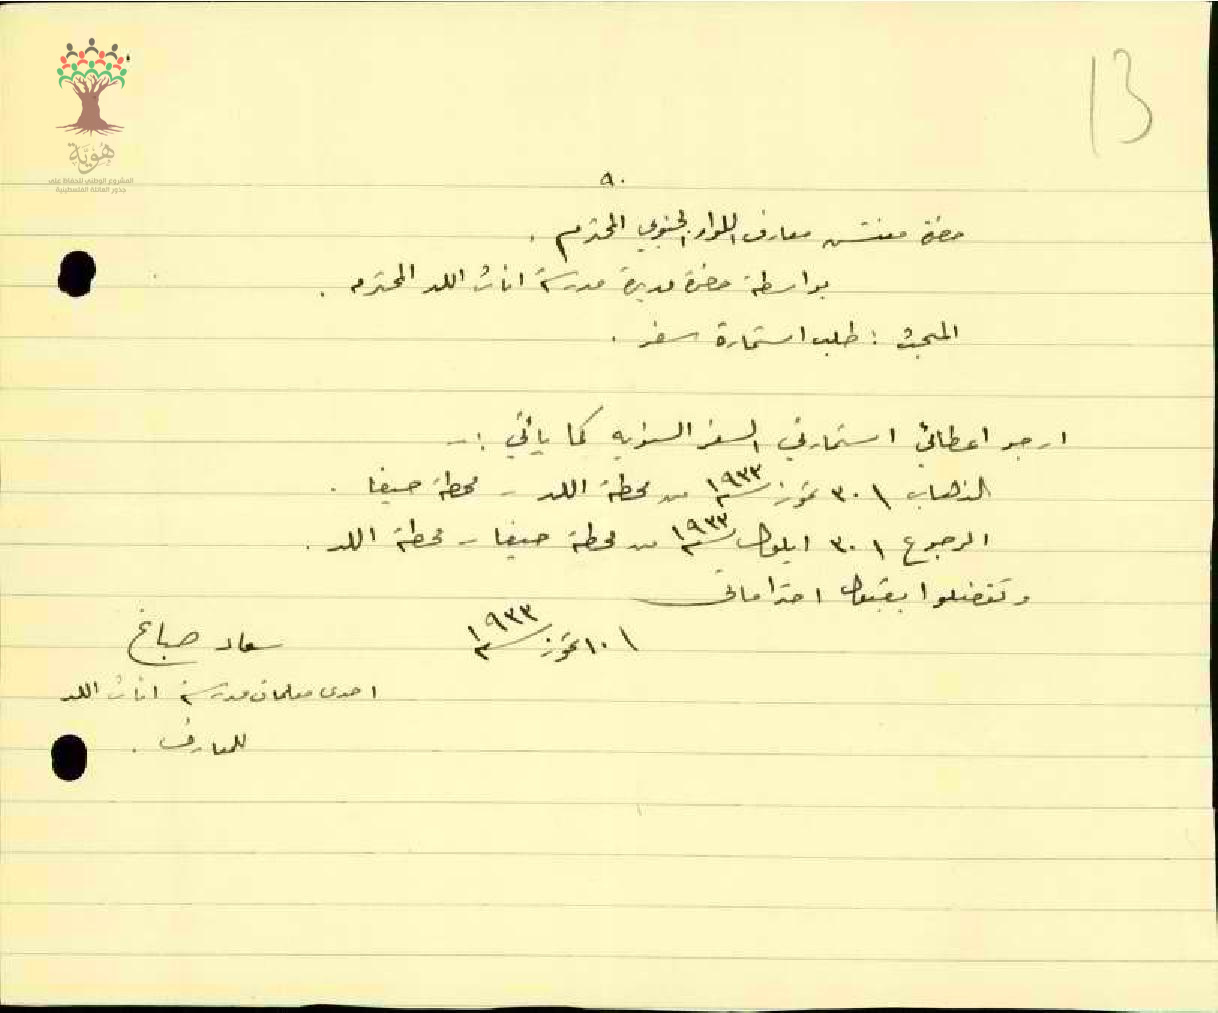 13
هُوِيَّة
المشروع الوطني للحفاظ على
جذور العائلة الفلسطينية
٩٠
حضرة مفتش معارف اللواء الجنوبي المحترم .
بواسطة حضرة مديرة مدرسة اناث اللد المحترمه .
المبحث : طلب استمارة سفر .
ارجو اعطائي استمارتي السفر السنويه كما يأتي :-
الذهاب ٣٠١ تموز سنة ١٩٣٣ من محطة اللد - محطة حيفا .
الرجوع ٣٠١ ايلول سنة ١٩٣٣ من محطة حيفا - محطة اللد .
وتفضلوا بقبول احتراماتي
١٠١ تموز سنة ١٩٣٣
سعاد صباغ
احدى معلمات مدرسة اناث اللد
للمعارف .